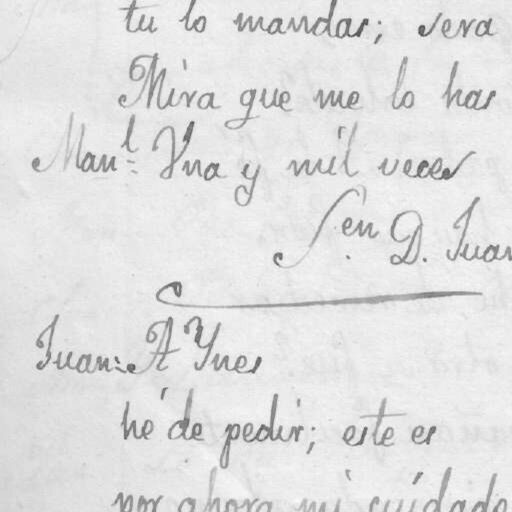 tu lo mandas; sera
Mira que me lo has
Man.l Vna y mil veces
S.en D. Juan
Juan: A Ynes
hé de pedir; este es
por ahora mi cuidado